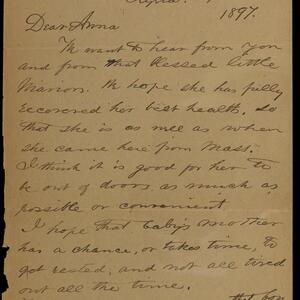 1897.
Dear Anna
We want to hear from you
and from that blessed little
Marion. We hope she has fully
recovered her best health, so
that she is as nice as when
she came here from Mass.
I think it is good for her to
be out of doors as much as
possible or convenient
I hope that baby's mother
has a chance, or takes time, to
get rested, and not all tired
out all the time.
that box